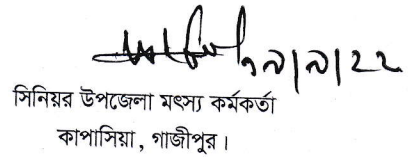 সিনিয়র উপজেলা মৎস্য কর্মকর্তা
কাপাসিয়া, গাজীপুর।